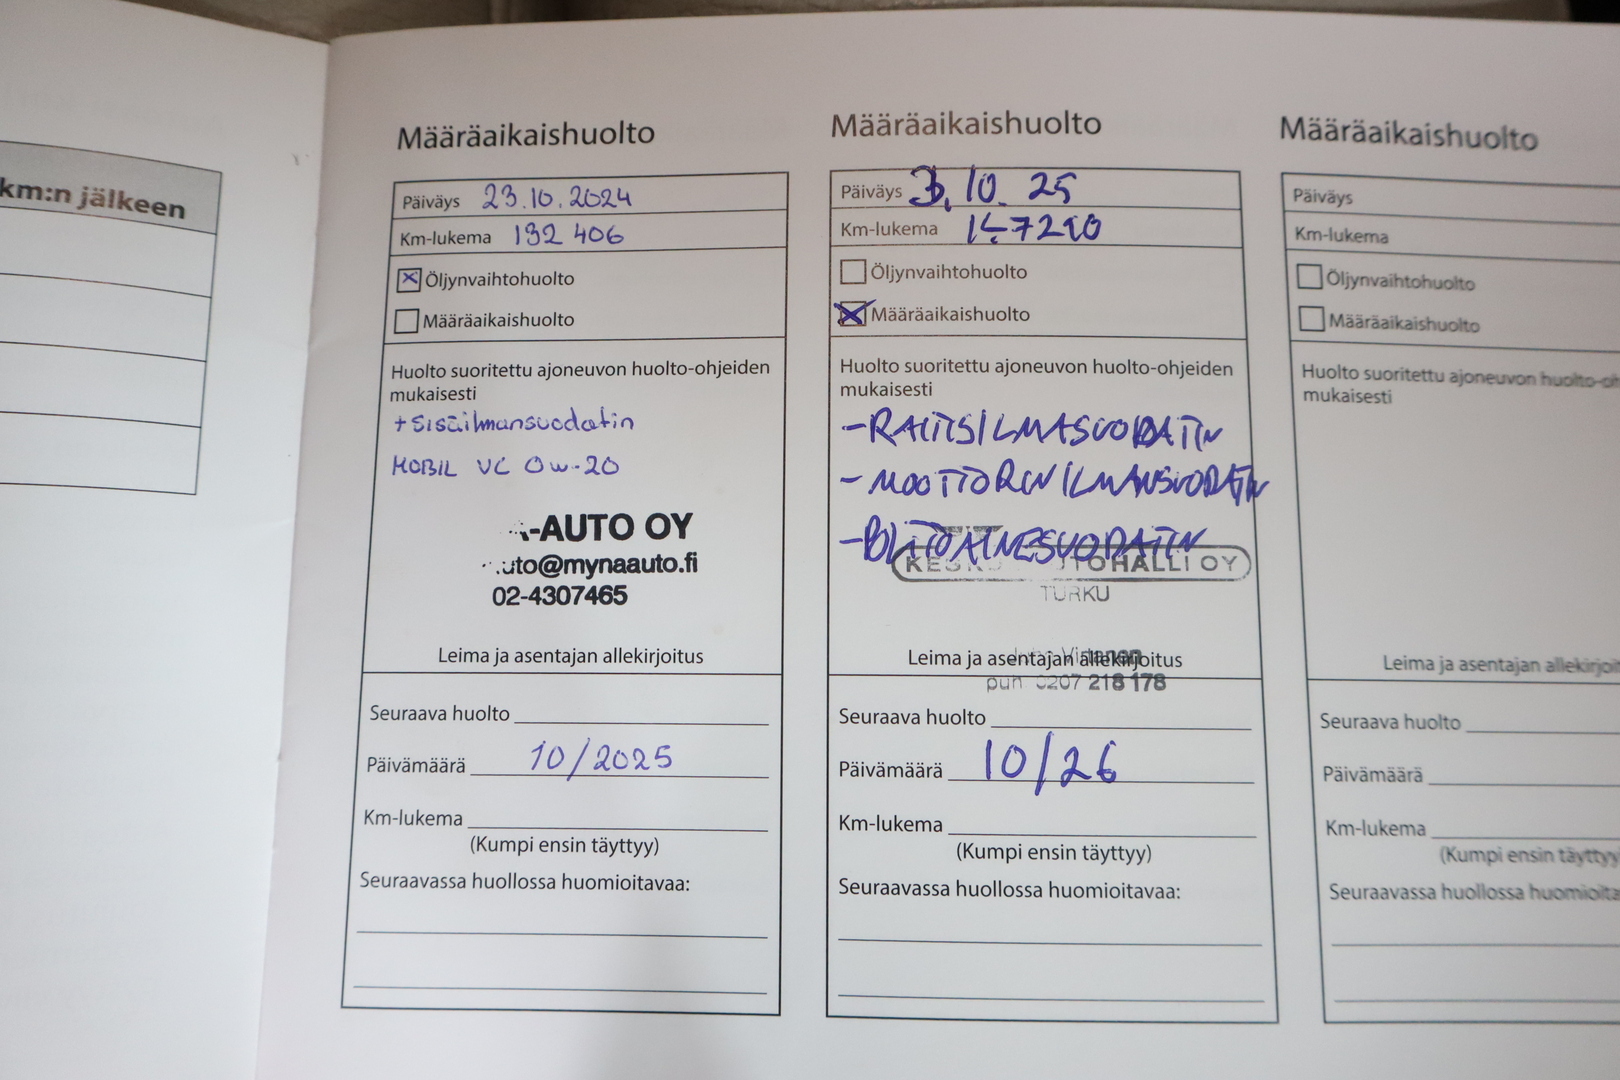 km:n jälkeen
Määräaikaishuolto
Päiväys 23.10.2024
Km-lukema 132 406
Öljynvaihtohuolto
Määräaikaishuolto
Huolto suoritettu ajoneuvon huolto-ohjeiden
mukaisesti
+ Sisäilmansuodatin
MOBIL VC 0w-20
-AUTO OY
uto@mynaauto.fi
02-4307465
Leima ja asentajan allekirjoitus
Seuraava huolto
Päivämäärä 10/2025
Km-lukema
(Kumpi ensin täyttyy)
Seuraavassa huollossa huomioitavaa:
Määräaikaishuolto
Päiväys 3.10.25
Km-lukema
Öljynvaihtohuolto
Määräaikaishuolto
Huolto suoritettu ajoneuvon huolto-ohjeiden
mukaisesti
- RAITISILMASUODATIN
- MOOTTORIN ILMANSUODATIN
- POLTTOAINESUODATIN
AUTOHALLI OY
TURKU
Virtanen
Leima ja asentajan allekirjoitus
puh 0207 218 178
Seuraava huolto
Päivämäärä 10/26
Km-lukema
(Kumpi ensin täyttyy)
Seuraavassa huollossa huomioitavaa:
Määräaikaishuolto
Päiväys
Km-lukema
Öljynvaihtohuolto
Määräaikaishuolto
Huolto suoritettu ajoneuvon huolto-oh
mukaisesti
Leima ja asentajan allekirjoit
Seuraava huolto
Päivämäärä
Km-lukema
(Kumpi ensin täyttyy
Seuraavassa huollossa huomioita